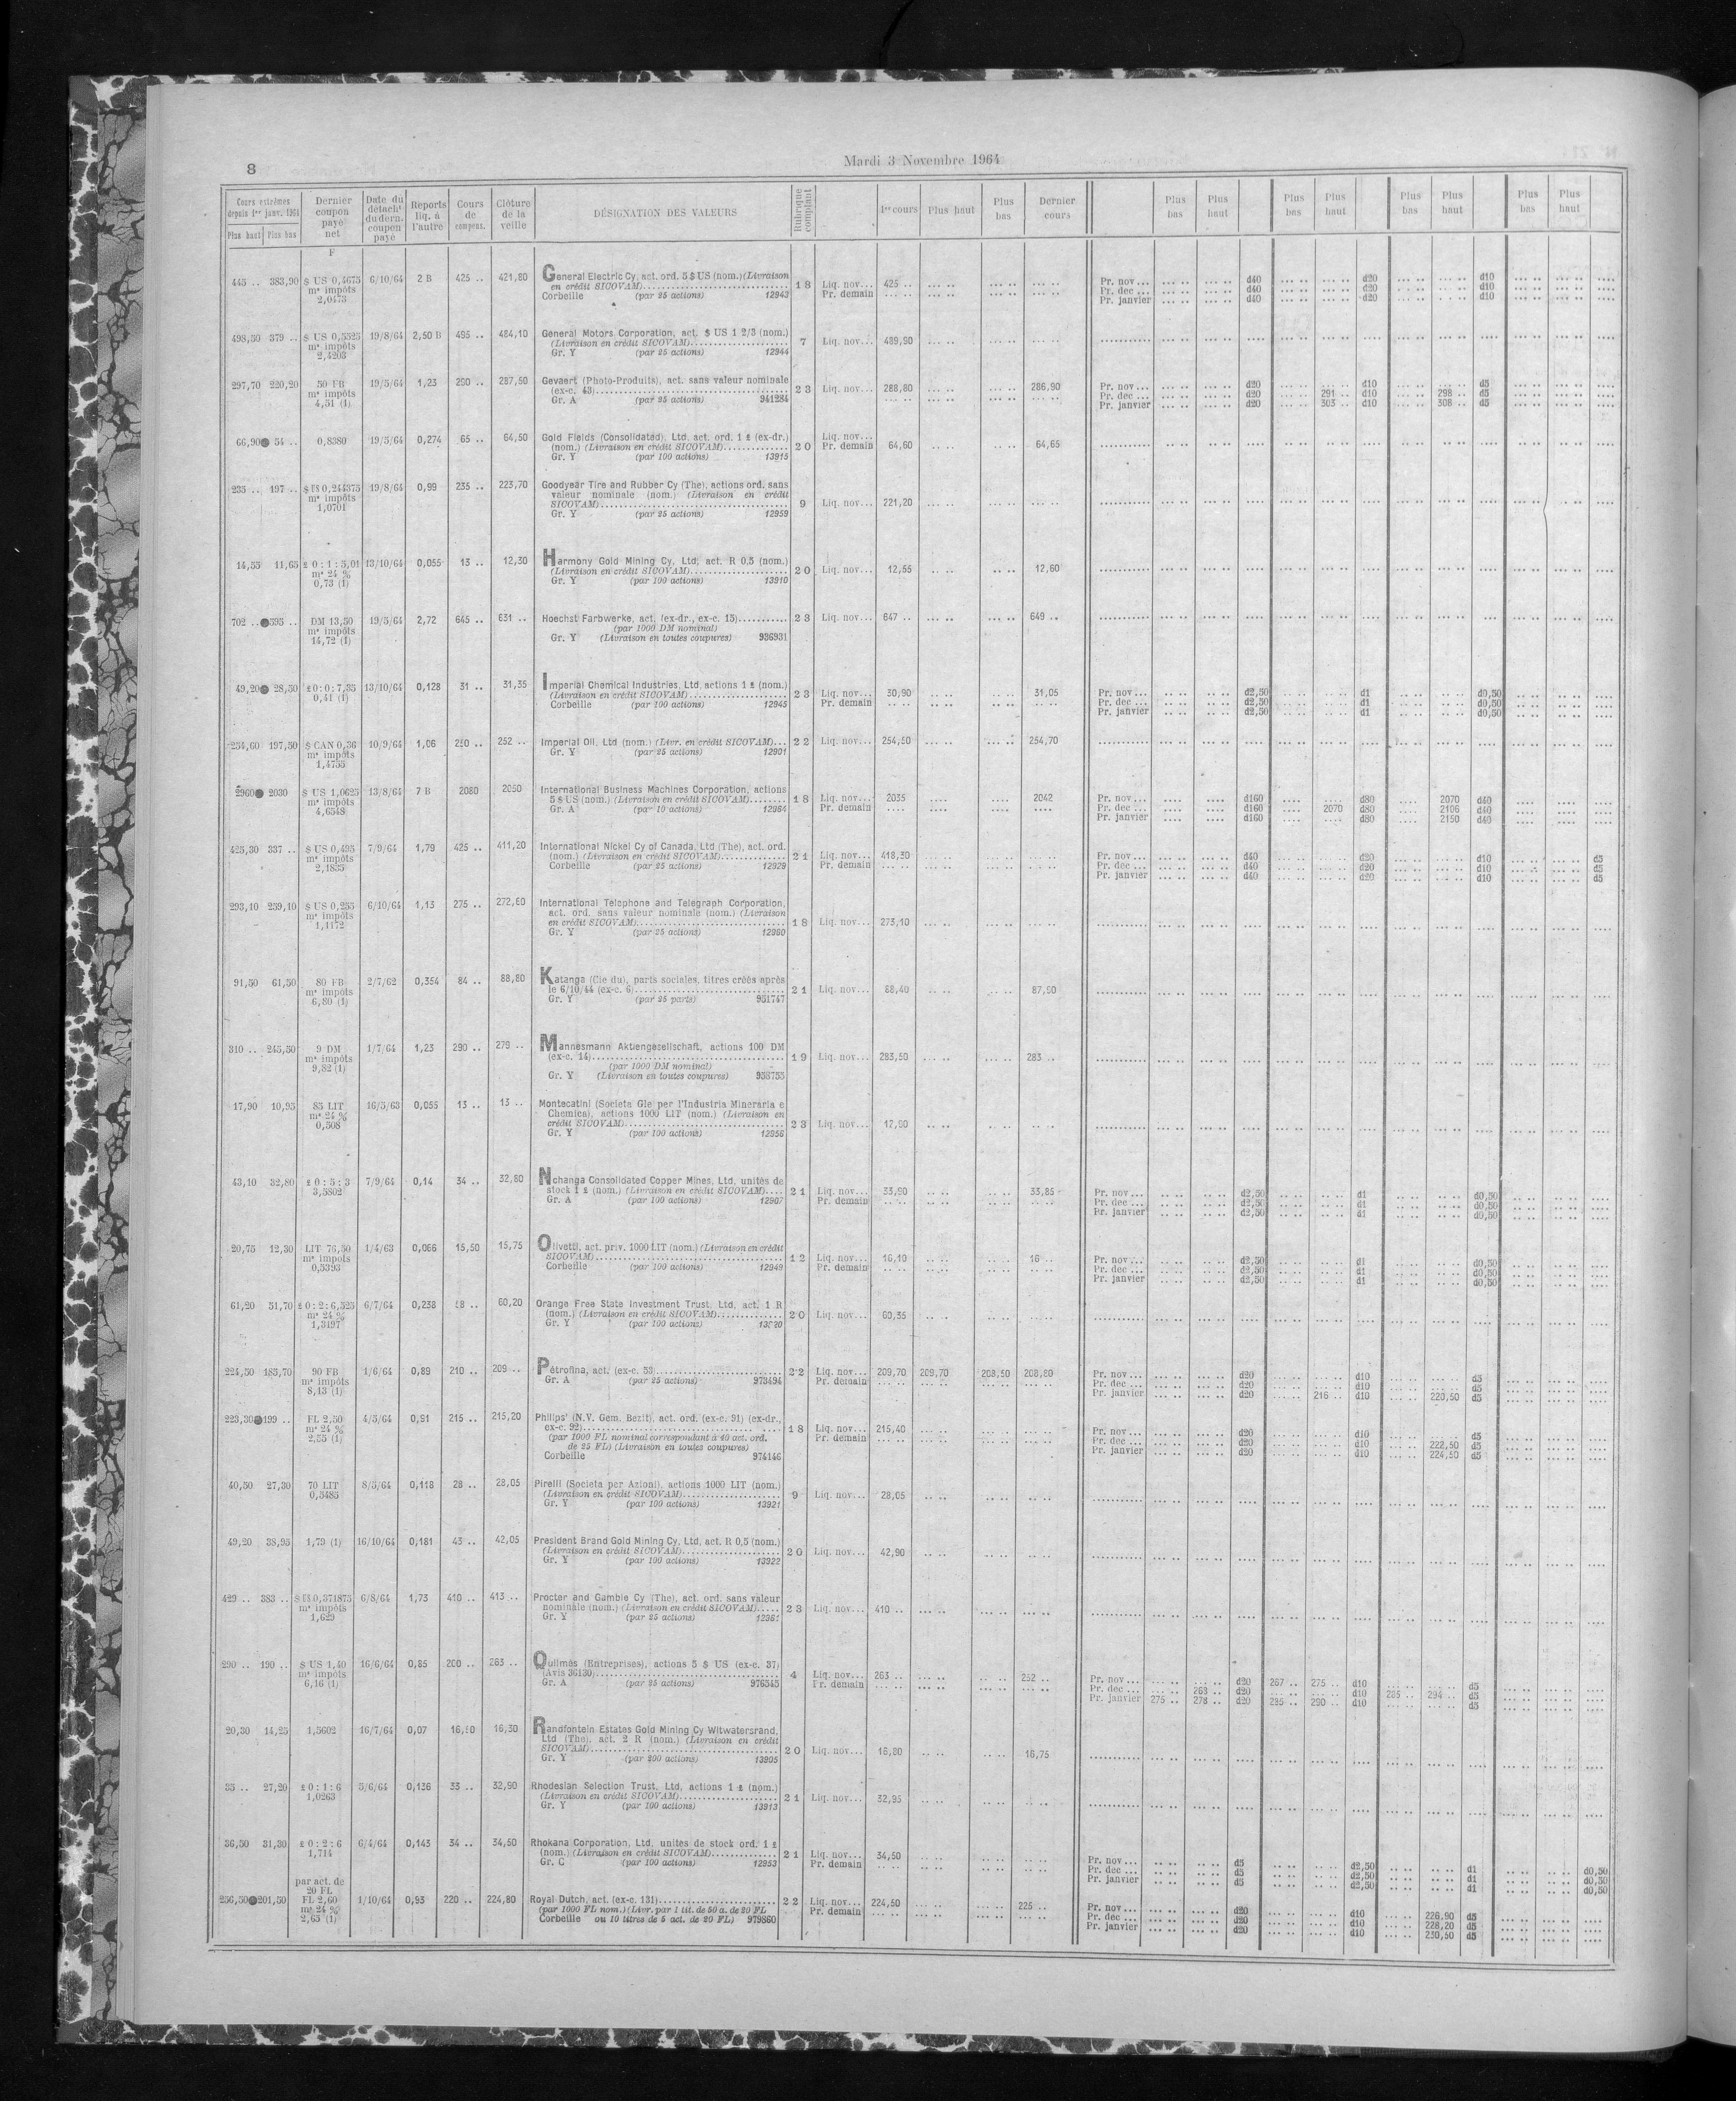 8
Mardi 3 Novembre 1964
Cours extrêmes depuis 1er janv. 1964 Plus haut Plus bas
Dernier coupon payé net
Date du détacht du dern. coupon payé
Reports liq. à l'autre
Cours de compens.
Clôture de la veille
DÉSIGNATION DES VALEURS
Rubrique comptant
1er cours Plus haut Plus bas Dernier cours
Plus bas Plus haut Plus bas Plus haut Plus bas Plus haut Plus bas Plus haut
F
445 .. 383,90 $ US 0,4675 6/10/64 2 B 425 .. 421,80 General Electric Cy, act. ord. 5 $ US (nom.) (Livraison
ms impôts en crédit SICOVAM) 18 Liq. nov... 425 .. Pr. nov... d40 d20 d10
2,0473 Corbeille (par 25 actions) 12943 Pr. demain Pr. dec ... d40 d20 d10
Pr. janvier d40 d20 d10
498,50 379 .. $ US 0,5525 19/8/64 2,50 B 495 .. 484,10 General Motors Corporation, act. $ US 1 2/3 (nom.)
ms impôts (Livraison en crédit SICOVAM) 7 Liq. nov... 489,90
2,4203 Gr. Y (par 25 actions) 12944
297,70 220,20 50 FB 19/5/64 1,23 290 .. 287,50 Gevaert (Photo-Produits), act. sans valeur nominale
ms impôts (ex-c. 43) 23 Liq. nov... 288,80 286,90 Pr. nov... d20 d10 d5
4,51 (1) Gr. A (par 25 actions) 941284 Pr. dec ... d20 291 .. d10 298 .. d5
Pr. janvier d20 303 .. d10 308 .. d5
66,90 54 .. 0,8380 19/5/64 0,274 65 .. 64,50 Gold Fields (Consolidated), Ltd, act. ord. 1 £ (ex-dr.)
(nom.) (Livraison en crédit SICOVAM) 20 Liq. nov... Pr. demain 64,60 64,65
Gr. Y (par 100 actions) 13915
235 .. 197 .. $ US 0,244375 19/8/64 0,99 235 .. 223,70 Goodyear Tire and Rubber Cy (The), actions ord. sans
ms impôts valeur nominale (nom.) (Livraison en crédit
1,0701 SICOVAM) 9 Liq. nov... 221,20
Gr. Y (par 25 actions) 12959
14,55 11,65 £ 0 : 1 : 5,01 13/10/64 0,055 13 .. 12,30 Harmony Gold Mining Cy, Ltd, act. R 0,5 (nom.)
ms 24 % (Livraison en crédit SICOVAM) 20 Liq. nov... 12,55 12,60
0,73 (1) Gr. Y (par 100 actions) 13910
702 .. 595 .. DM 13,50 19/5/64 2,72 645 .. 631 .. Hoechst Farbwerke, act. (ex-dr., ex-c. 15) 23 Liq. nov... 647 .. 649 ..
ms impôts (par 1000 DM nominal)
14,72 (1) Gr. Y (Livraison en toutes coupures) 936931
49,20 28,50 £ 0 : 0 : 7,35 13/10/64 0,128 31 .. 31,35 Imperial Chemical Industries, Ltd, actions 1 £ (nom.)
0,41 (1) (Livraison en crédit SICOVAM) 23 Liq. nov... 30,90 31,05 Pr. nov... d2,50 d1 d0,50
Corbeille (par 100 actions) 12945 Pr. demain Pr. dec ... d2,50 d1 d0,50
Pr. janvier d2,50 d1 d0,50
254,60 197,50 $ CAN 0,36 10/9/64 1,06 250 .. 252 .. Imperial Oil, Ltd (nom.) (Livr. en crédit SICOVAM)... 22 Liq. nov... 254,50 254,70
ms impôts Gr. Y (par 25 actions) 12901
1,4755
2960 2030 $ US 1,0625 13/8/64 7 B 2080 2050 International Business Machines Corporation, actions
ms impôts 5 $ US (nom.) (Livraison en crédit SICOVAM) 18 Liq. nov... 2035 2042 Pr. nov... d160 d80 2070 d40
4,6548 Gr. A (par 10 actions) 12984 Pr. demain Pr. dec ... d160 2070 d80 2106 d40
Pr. janvier d160 d80 2150 d40
425,30 337 .. $ US 0,495 7/9/64 1,79 425 .. 411,20 International Nickel Cy of Canada, Ltd (The), act. ord.
ms impôts (nom.) (Livraison en crédit SICOVAM) 21 Liq. nov... 418,30 Pr. nov... d40 d20 d10 d5
2,1835 Corbeille (par 25 actions) 12929 Pr. demain Pr. dec ... d40 d20 d10 d5
Pr. janvier d40 d20 d10 d5
293,10 259,10 $ US 0,255 6/10/64 1,13 275 .. 272,80 International Telephone and Telegraph Corporation,
ms impôts act. ord. sans valeur nominale (nom.) (Livraison
1,1172 en crédit SICOVAM) 18 Liq. nov... 273,10
Gr. Y (par 25 actions) 12980
91,50 61,50 80 FB 2/7/62 0,354 84 .. 88,80 Katanga (Cie du), parts sociales, titres créés après
ms impôts le 6/10/44 (ex-c. 6) 21 Liq. nov... 88,40 87,90
6,80 (1) Gr. Y (par 25 parts) 951747
310 .. 245,50 9 DM 1/7/64 1,23 290 .. 279 .. Mannesmann Aktiengesellschaft, actions 100 DM
ms impôts (ex-c. 14) 19 Liq. nov... 283,50 283 ..
9,82 (1) (par 1000 DM nominal)
Gr. Y (Livraison en toutes coupures) 958755
17,90 10,95 85 LIT 16/5/63 0,055 13 .. 13 .. Montecatini (Societa Gle per l'Industria Mineraria e
ms 24 % Chemica), actions 1000 LIT (nom.) (Livraison en
0,508 crédit SICOVAM) 23 Liq. nov... 12,90
Gr. Y (par 100 actions) 12956
43,10 32,80 £ 0 : 5 : 3 7/9/64 0,14 34 .. 32,80 Nchanga Consolidated Copper Mines, Ltd, unités de
3,5802 stock 1 £ (nom.) (Livraison en crédit SICOVAM) 21 Liq. nov... 33,90 33,85 Pr. nov... d2,50 d1 d0,50
Gr. A (par 100 actions) 12907 Pr. demain Pr. dec ... d2,50 d1 d0,50
Pr. janvier d2,50 d1 d0,50
20,75 12,30 LIT 76,50 1/4/63 0,066 15,50 15,75 Olivetti, act. priv. 1000 LIT (nom.) (Livraison en crédit
ms impôts SICOVAM) 12 Liq. nov... 16,10 16 .. Pr. nov... d2,50 d1 d0,50
0,5393 Corbeille (par 100 actions) 12949 Pr. demain Pr. dec ... d2,50 d1 d0,50
Pr. janvier d2,50 d1 d0,50
61,20 51,70 £ 0 : 2 : 6,525 6/7/64 0,238 58 .. 60,20 Orange Free State Investment Trust, Ltd, act. 1 R
ms 24 % (nom.) (Livraison en crédit SICOVAM) 20 Liq. nov... 60,35
1,3197 Gr. Y (par 100 actions)
224,50 183,70 90 FB 1/6/64 0,89 210 .. 209 .. Pétrofina, act. (ex-c. 53) 22 Liq. nov... 209,70 209,70 208,50 208,80 Pr. nov... d20 d10 d5
ms impôts Gr. A (par 25 actions) 973494 Pr. demain Pr. dec ... d20 d10
8,13 (1) Pr. janvier d20 216 .. d10 220,50 d5
223,30 199 .. FL 2,50 4/5/64 0,91 215 .. 215,20 Philips' (N.V. Gem. Bezit), act. ord. (ex-c. 91) (ex-dr.,
ms 24 % ex-c. 92) 18 Liq. nov... 215,40 Pr. nov... d20 d10 d5
2,55 (1) (par 1000 FL nominal correspondant à 40 act. ord. Pr. demain Pr. dec ... d20 d10 222,50 d5
de 25 FL) (Livraison en toutes coupures) Pr. janvier d20 d10 224,50 d5
Corbeille 974146
40,50 27,30 70 LIT 8/5/64 0,118 28 .. 28,05 Pirelli (Societa per Azioni), actions 1000 LIT (nom.)
0,5483 (Livraison en crédit SICOVAM) 9 Liq. nov... 28,05
Gr. Y (par 100 actions) 13921
49,20 38,95 1,79 (1) 16/10/64 0,181 43 .. 42,05 President Brand Gold Mining Cy, Ltd, act. R 0,5 (nom.)
(Livraison en crédit SICOVAM) 20 Liq. nov... 42,90
Gr. Y (par 100 actions) 13922
429 .. 383 .. $ US 0,371875 6/8/64 1,73 410 .. 413 .. Procter and Gamble Cy (The), act. ord. sans valeur
ms impôts nominale (nom.) (Livraison en crédit SICOVAM) 23 Liq. nov... 410 ..
1,629 Gr. Y (par 25 actions)
290 .. 190 .. $ US 1,40 16/6/64 0,85 200 .. 263 .. Quilmès (Entreprises), actions 5 $ US (ex-c. 37)
ms impôts (Avis 36130) 4 Liq. nov... 263 .. 252 .. Pr. nov... d20 267 .. 275 .. d10 d5
6,16 (1) Gr. A (par 25 actions) 976545 Pr. demain Pr. dec ... 268 .. d20 d10 285 .. 294 .. d5
Pr. janvier 275 .. 278 .. d20 285 .. 290 .. d10 d5
20,30 14,25 1,5602 16/7/64 0,07 16,50 16,30 Randfontein Estates Gold Mining Cy Witwatersrand,
Ltd (The), act. 2 R (nom.) (Livraison en crédit
SICOVAM) 20 Liq. nov... 16,80 16,75
Gr. Y (par 200 actions) 13905
35 .. 27,20 £ 0 : 1 : 6 5/6/64 0,136 33 .. 32,90 Rhodesian Selection Trust, Ltd, actions 1 £ (nom.)
1,0263 (Livraison en crédit SICOVAM) 21 Liq. nov... 32,95
Gr. Y (par 100 actions) 13913
36,50 31,30 £ 0 : 2 : 6 6/4/64 0,143 34 .. 34,50 Rhokana Corporation, Ltd, unites de stock ord. 1 £
1,714 (nom.) (Livraison en crédit SICOVAM) 21 Liq. nov... 34,50 Pr. nov... d5 d2,50 d1 d0,50
Gr. C (par 100 actions) 12953 Pr. demain Pr. dec ... d5 d2,50 d1 d0,50
Pr. janvier d5 d2,50 d1 d0,50
par act. de
20 FL
256,50 201,50 FL 2,60 1/10/64 0,93 220 .. 224,80 Royal Dutch, act. (ex-c. 131) 22 Liq. nov... 224,50 225 .. Pr. nov... d20 d10 226,90 d5
ms 24 % (par 1000 FL nom.) (Livr. par 1 tit. de 50 a. de 20 FL Pr. demain Pr. dec ... d20 d10 228,20 d5
2,65 (1) Corbeille ou 10 titres de 5 act. de 20 FL) 979860 Pr. janvier d20 d10 230,50 d5